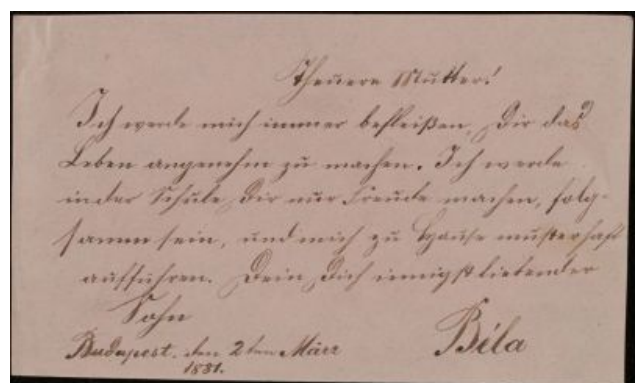 Theuere Mutter!
Ich werde mich immer befleißen, Dir das
Leben angenehm zu machen. Ich werde
in der Schule Dir nur Freude machen, folg-
samm sein, und mich zu Hause musterhaft
aufführen. Dein Dich innigst liebender
Sohn
Béla
Budapest. den 2ten März
1881.